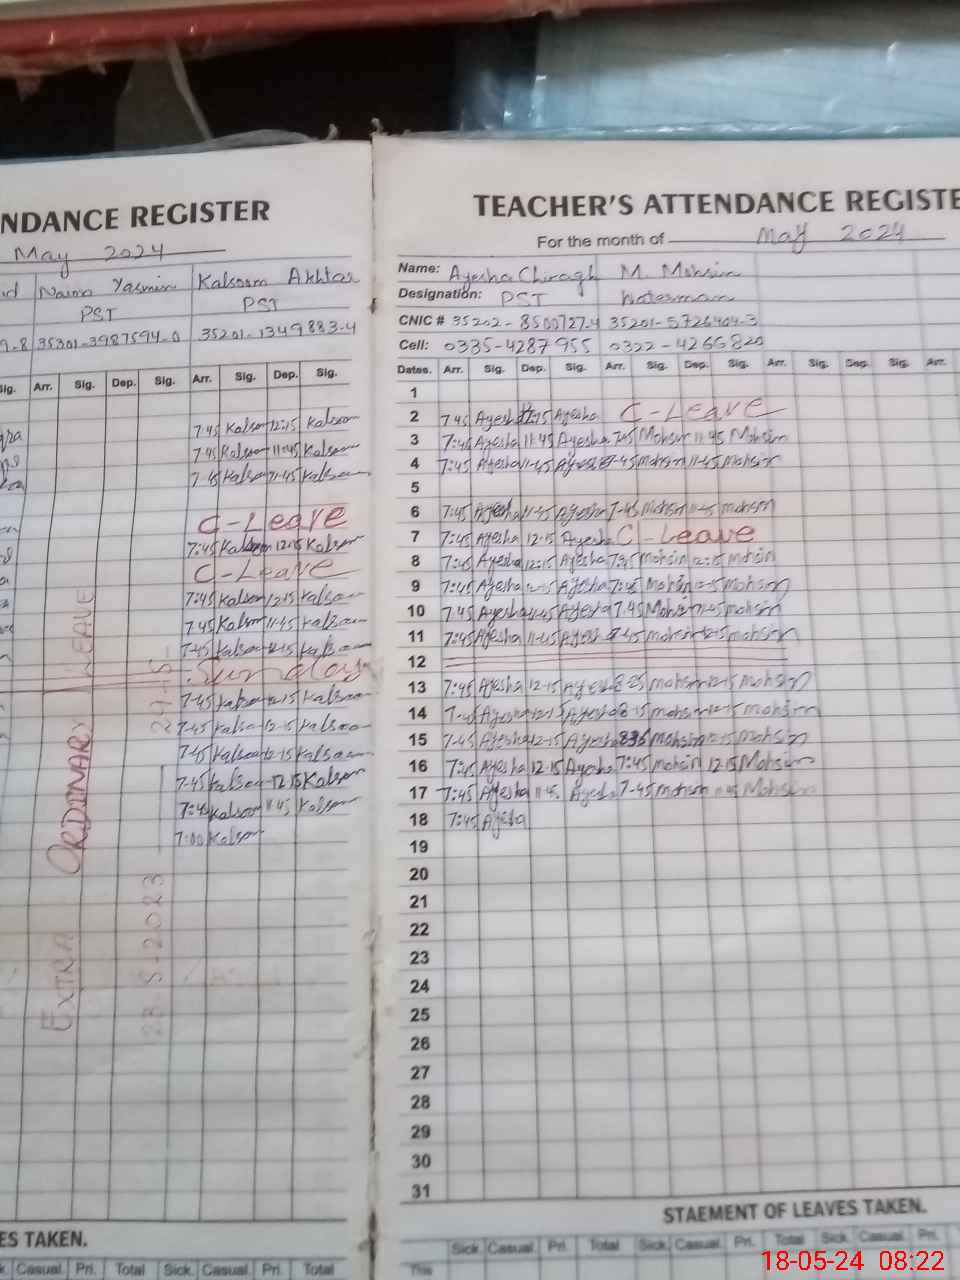 NDANCE REGISTER
May 2024
Naima Yasmin Kalsoom Akhtar
PST PST
9-8 35301-3987594-0 35201-1349883-4
Sig. Arr. Sig. Dep. Sig. Arr. Sig. Dep. Sig.
7:45 Kalsoom 12:15 Kalsoom
7:45 Kalsoom 11:45 Kalsoom
7-45 Kalsoom 11-45 Kalsoom
C-Leave
7:45 Kalsoom 12:15 Kalsoom
C-Leave
7:45 Kalsoom 12:15 Kalsoom
7:45 Kalsoom 11-45 Kalsoom
7-45 Kalsoom Kalsoom
Sunday
7-45 Kalsoom 12-15 Kalsoom
7-45 Kalsoom 12-15 Kalsoom
7-45 Kalsoom 12-15 Kalsoom
7-45 Kalsoom 12-15 Kalsoom
7:45 Kalsoom 11:45 Kalsoom
7:00 Kalsoom
EXTRA ORDINARY LEAVE
23-5-2023
ES TAKEN.
Casual Pri. Total Sick. Casual Pri. Total
TEACHER'S ATTENDANCE REGISTE
For the month of May 2024
Name: Ayesha Chiragh M. Mohsin
Designation: PST Waterman
CNIC # 35202-8500727-4 35201-5726404-3
Cell: 0335-4287955 0322-4266820
Dates. Arr. Sig. Dep. Sig. Arr. Sig. Dep. Sig. Arr. Sig. Dep. Sig. Arr.
1
2 7 45 Ayesha 12:15 Ayesha C-Leave
3 7:45 Ayesha 11:45 Ayesha 7:45 Mohsin 11:45 Mohsin
4 7:45 Ayesha 11-45 Ayesha 7-45 Mohsin 11-45 Mohsin
5
6 7:45 Ayesha 11-45 Ayesha 7-45 Mohsin 11-45 mohsin
7 7:45 Ayesha 12-15 Ayesha C-Leave
8 7:45 Ayesha 12:15 Ayesha 7:45 Mohsin 12:15 Mohsin
9 7:45 Ayesha 12-15 Ayesha 7:45 Mohsin 12-15 Mohsin
10 7 45 Ayesha 11-45 Ayesha 7.45 Mohsin 11-45 mohsin
11 7:45 Ayesha 11-45 Ayesha 7-45 mohsin 12-15 mohsin
12
13 7:45 Ayesha 12-15 Ayesha 8-25 mohsin 12-15 mohsin
14 7-45 Ayesha 12-15 Ayesha 8-15 mohsin 12-15 mohsin
15 7-45 Ayesha 12-15 Ayesha 836 mohsin 12-15 mohsin
16 7:45 Ayesha 12-15 Ayesha 7:45 mohsin 12 15 Mohsin
17 7:45 Ayesha 11 45 Ayesha 7-45 mohsin 11 45 Mohsin
18 7:45 Ayesha
19
20
21
22
23
24
25
26
27
28
29
30
31
STAEMENT OF LEAVES TAKEN.
Sick. Casual. Pri. Total Sick. Casual. Pri. Total Sick. Casual. Pri.
This
18-05-24 08:22